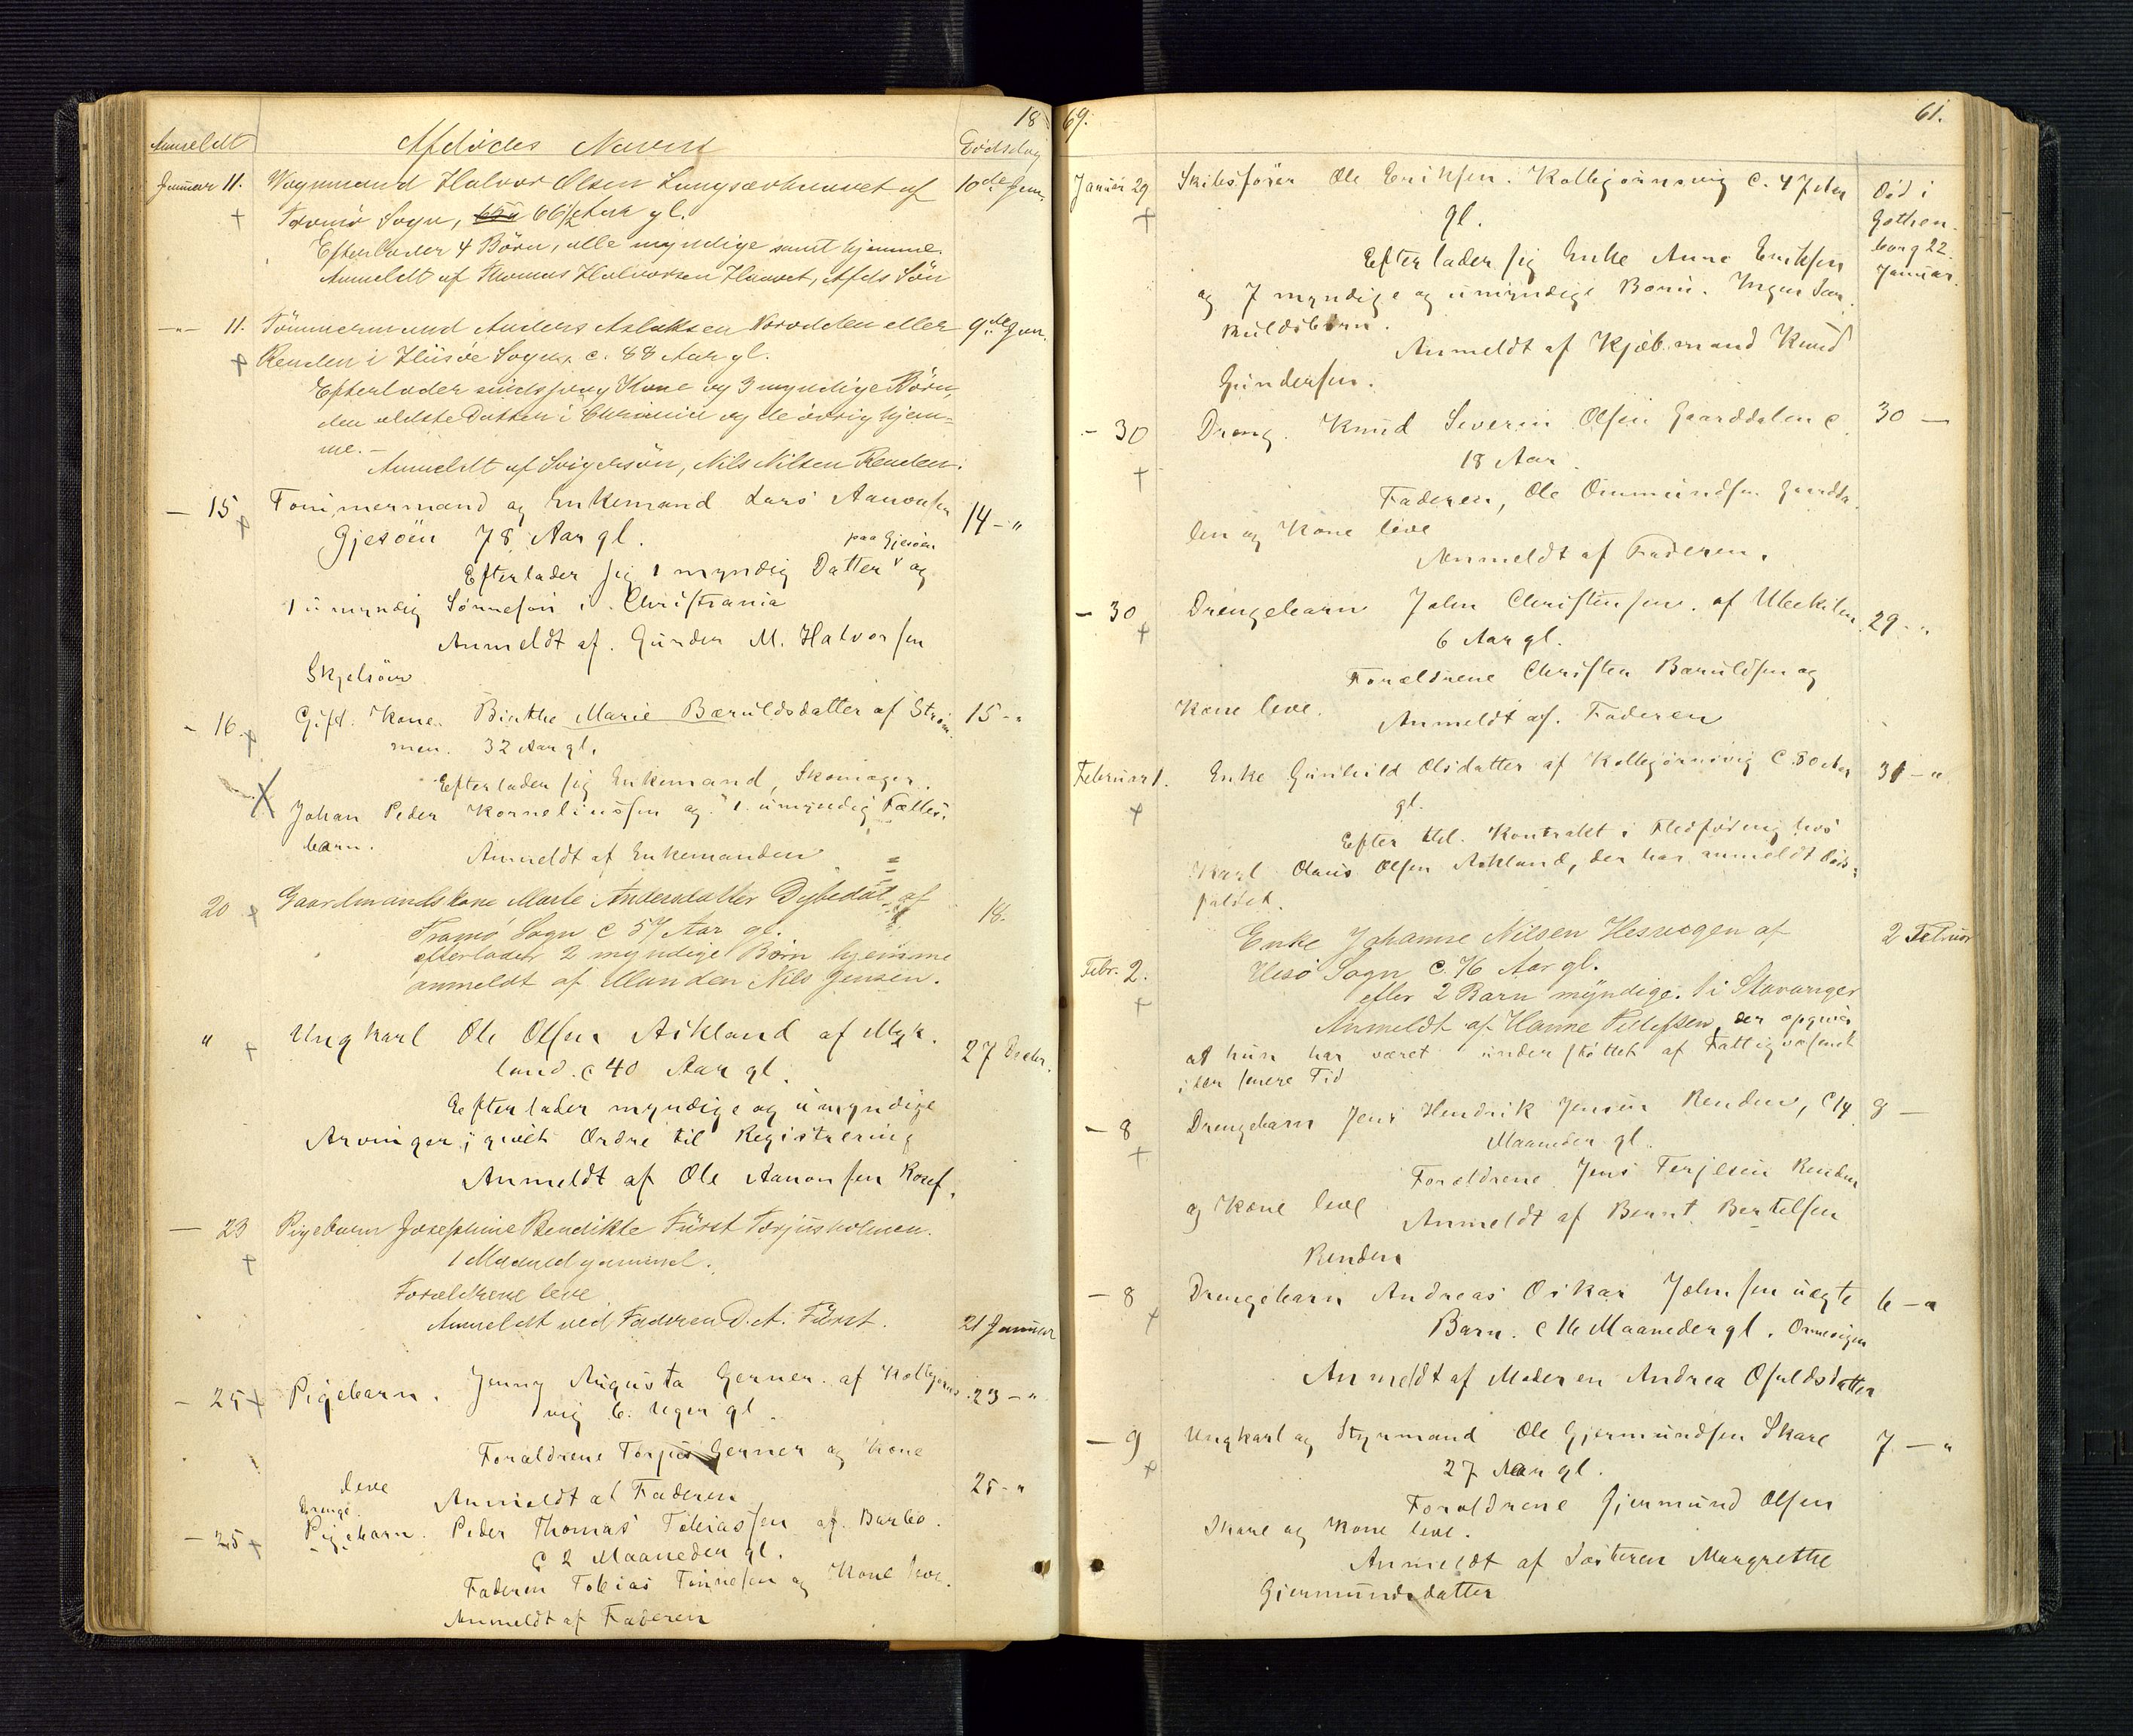 1869.
61.
Anmeldt Afdødes Navn Dødsdag
Januar 11. Vognmand Halvor Olsen Langsævhuuset af 10de Jan.
Tromø Sogn, 66 1/2 Aar gl.
Efterlader 4 Börn, alle myndige samt hjemme.
Anmeldt af Thomas Halvorsen Huuset, Afds Sön
-"- 11. Tömmermand Anders Aslaksen Norodden eller 9de Jan.
Renden i Hisöe Sogn, c. 88 Aar gl.
Efterlader sindssvag Kone og 3 myndige Börn,
den ældste Datter i og de övrig hjem-
me. -
Anmeldt af Svigersön, Nils Nilsen Renden.
- 15 Tömmermand og Enkemand Lars Aanonsen 14 - "
Gjesöen 78 Aar gl.
paa Gjesöen
Efterlader sig 1 myndig Datter og
1 umyndig Sönnesön i Christiania
Anmeldt af Gunder M. Halvorsen
Skjelsöen
- 16. Gift Kone Birthe Marie Bæruldsdatter af Ström 15 - "
men. 32 Aar gl.
Efterlader sig Enkemand, Skomager
Johan Peder Korneliussen og 1 umyndig Fælles
barn.
Anmeldt af Enkemanden
20 Gaardmandskone Marte Andersdatter Dybedal af 18.
Tromö Sogn C 57 Aar gl.
efterlader 2 myndige Börn hjemme
anmeldt af Manden Nils Jensen.
" Ungkarl Ole Olsen Askland af Myk- 27 Decbr.
land. c 40 Aar gl.
Efterlader myndige og umyndige
Arvinger; givet Ordre til Registrering
Anmeldt af Ole Aanonsen
- 23 Pigebarn Josephine Bendikte Fürst Torjusholmen.
1 Maaned gammel.
Forældrene leve
Anmeldt ved Faderen D. A. Fürst. 21 Januar
- 25 Pigebarn. Jenny Augusta Gerner af Kolbjørns 23 - "
vig 6. Uger gl.
Forældrene Gerner og Kone
leve
Anmeldt af Faderen 25 - "
Drenge
- 25 Pigebarn. Peder Thomas Tobiassen af Barbo.
C 2 Maaneder gl.
Faderen Tobias Tönnesen og Kone leve.
Anmeldt af Faderen
Januar 29 Skibsförer Ole Eriksen. Kolbjörnsvig c. 47 Aar Död i
gl. Gothen-
borg 22
Januar.
Efterlader sig Enke Anne Eriksen
og 7 myndige og umyndige Børn. Ingen Sær
kuldsbørn.
Anmeldt af Kjøbmand Knud
Gundersen.
- 30 Dreng. Knud Severin Olsen Gaarddalen c 30 -
18 Aar.
Faderen, Ole Ommundsen Gaardda-
len og Kone leve
Anmeldt af Faderen.
- 30 Drengebarn John Christensen. af Ubekilen 29 - "
6 Aar gl.
Forældrene Christen Bæruldsen og
Kone leve.
Anmeldt af Faderen
Februar 1. Enke Gunhild Olsdatter af Kolbjørnsvig C 80 Aar 31 - "
gl.
Efter Kontrakt i Flædföring hos
Karl Olaus Olsen Askland, der har anmeldt Döds-
faldet.
Febr. 2. Enke Johanne Nilsen Hesvogen af 2 Februar
Hisö Sogn C. 76 Aar gl.
efter 2 Barn myndige. 1 i Stavanger
Anmeldt af Hanne, der opgiver
at hun har været understöttet af Fattigvæsenet
i den senere Tid
- 8 Drengebarn Jens Hendrik Jensen Renden, C 14 8 -
Maaneder gl.
Forældrene Jens Terjesen Renden
og Kone leve
Anmeldt af Bernt Bertelsen
Renden
- 8 Drengebarn Andreas Oskar Johnsen uægte 6 - "
Barn. C 16 Maaneder gl.
Anmeldt af Moderen Andrea Osuldsdatter
- 9 Ungkarl og Styrmand Ole Gjermundsen Skare 7 - "
27 Aar gl.
Forældrene Gjermund Olsen
Skare og Kone leve.
Anmeldt af Søsteren Margrethe
Gjermundsdatter